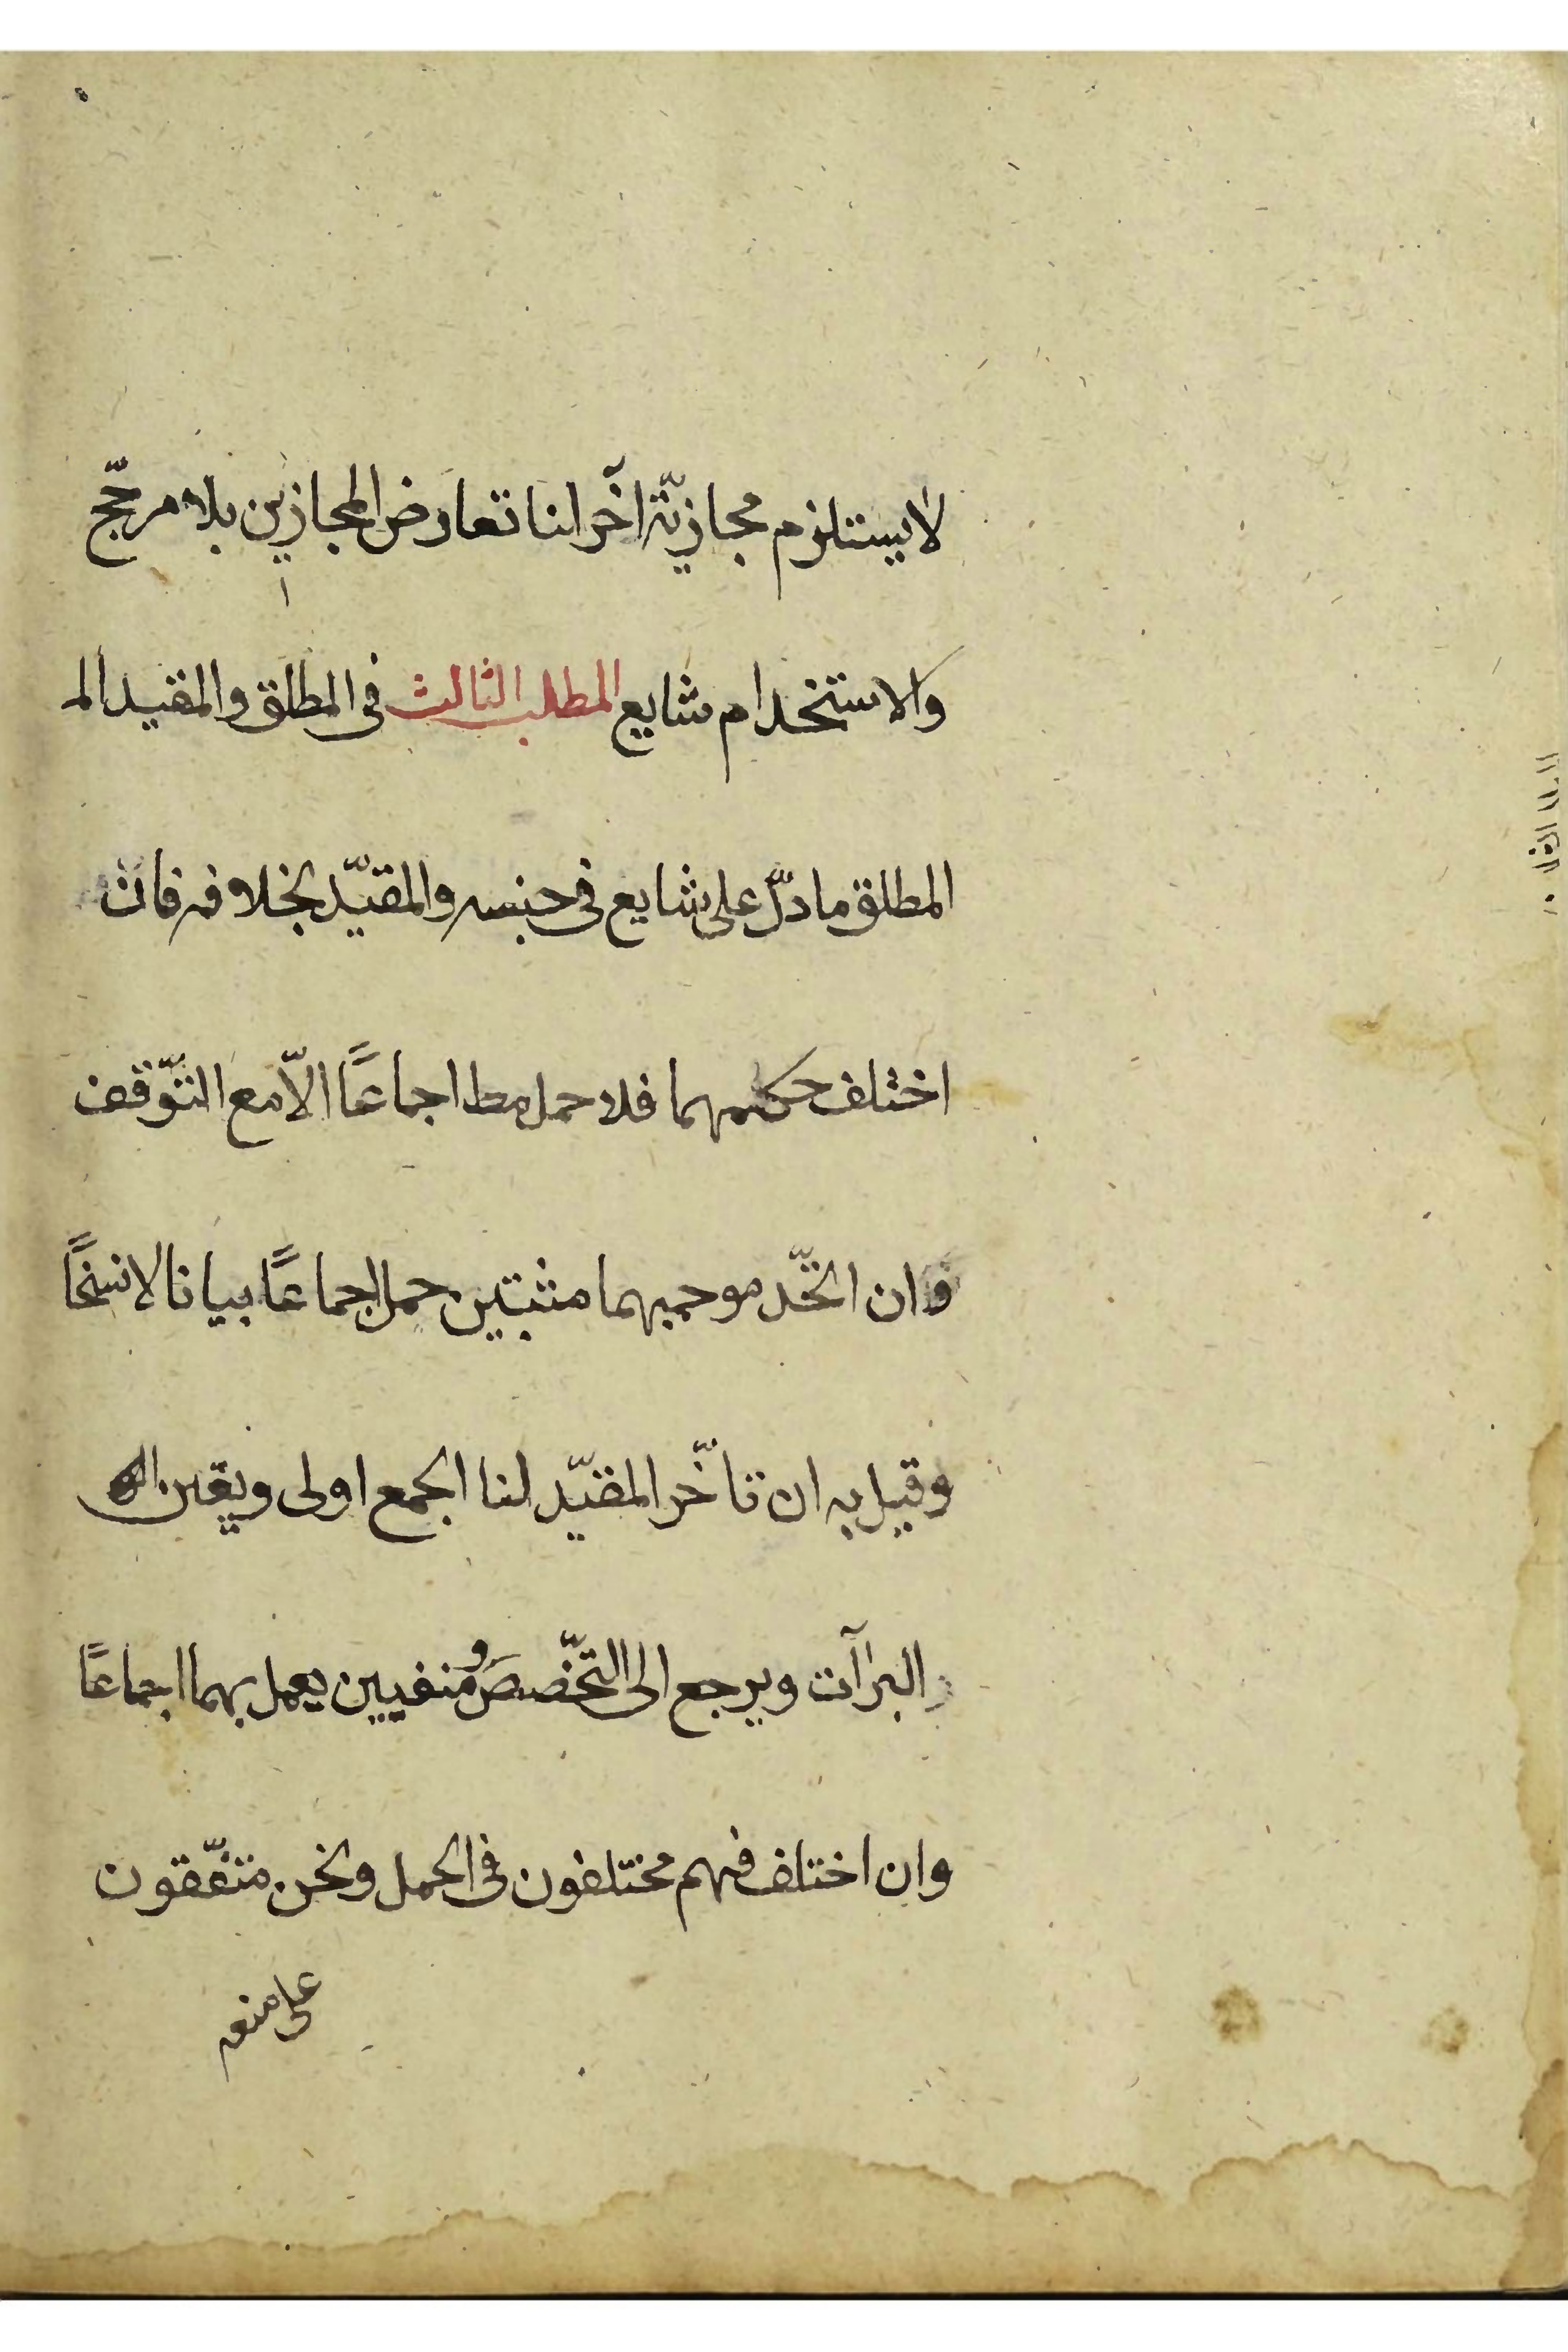 لا يستلزم مجازيّة آخر لنا تعارض المجازين بلا مرجّح
والاستخدام شايع المطلب الثالث في المطلق والمقيد الم
المطلق ما دلّ على شايع في جنسه والمقيّد بخلافه فان
اختلف حكمهما فلا حمل مط اجماعًا الّا مع التّوقف
وان اتخّد موجبهما مثبتين حمل اجماعًا بيانا لا نسخًا
وقيل به ان تاخّر المقيّد لنا الجمع اولى ويقين
البرآت ويرجع الى التخّصص ومنفيين يعمل بهما اجماعًا
وان اختلف فهم مختلفون في الحمل ونحن متفّقون
على منعه